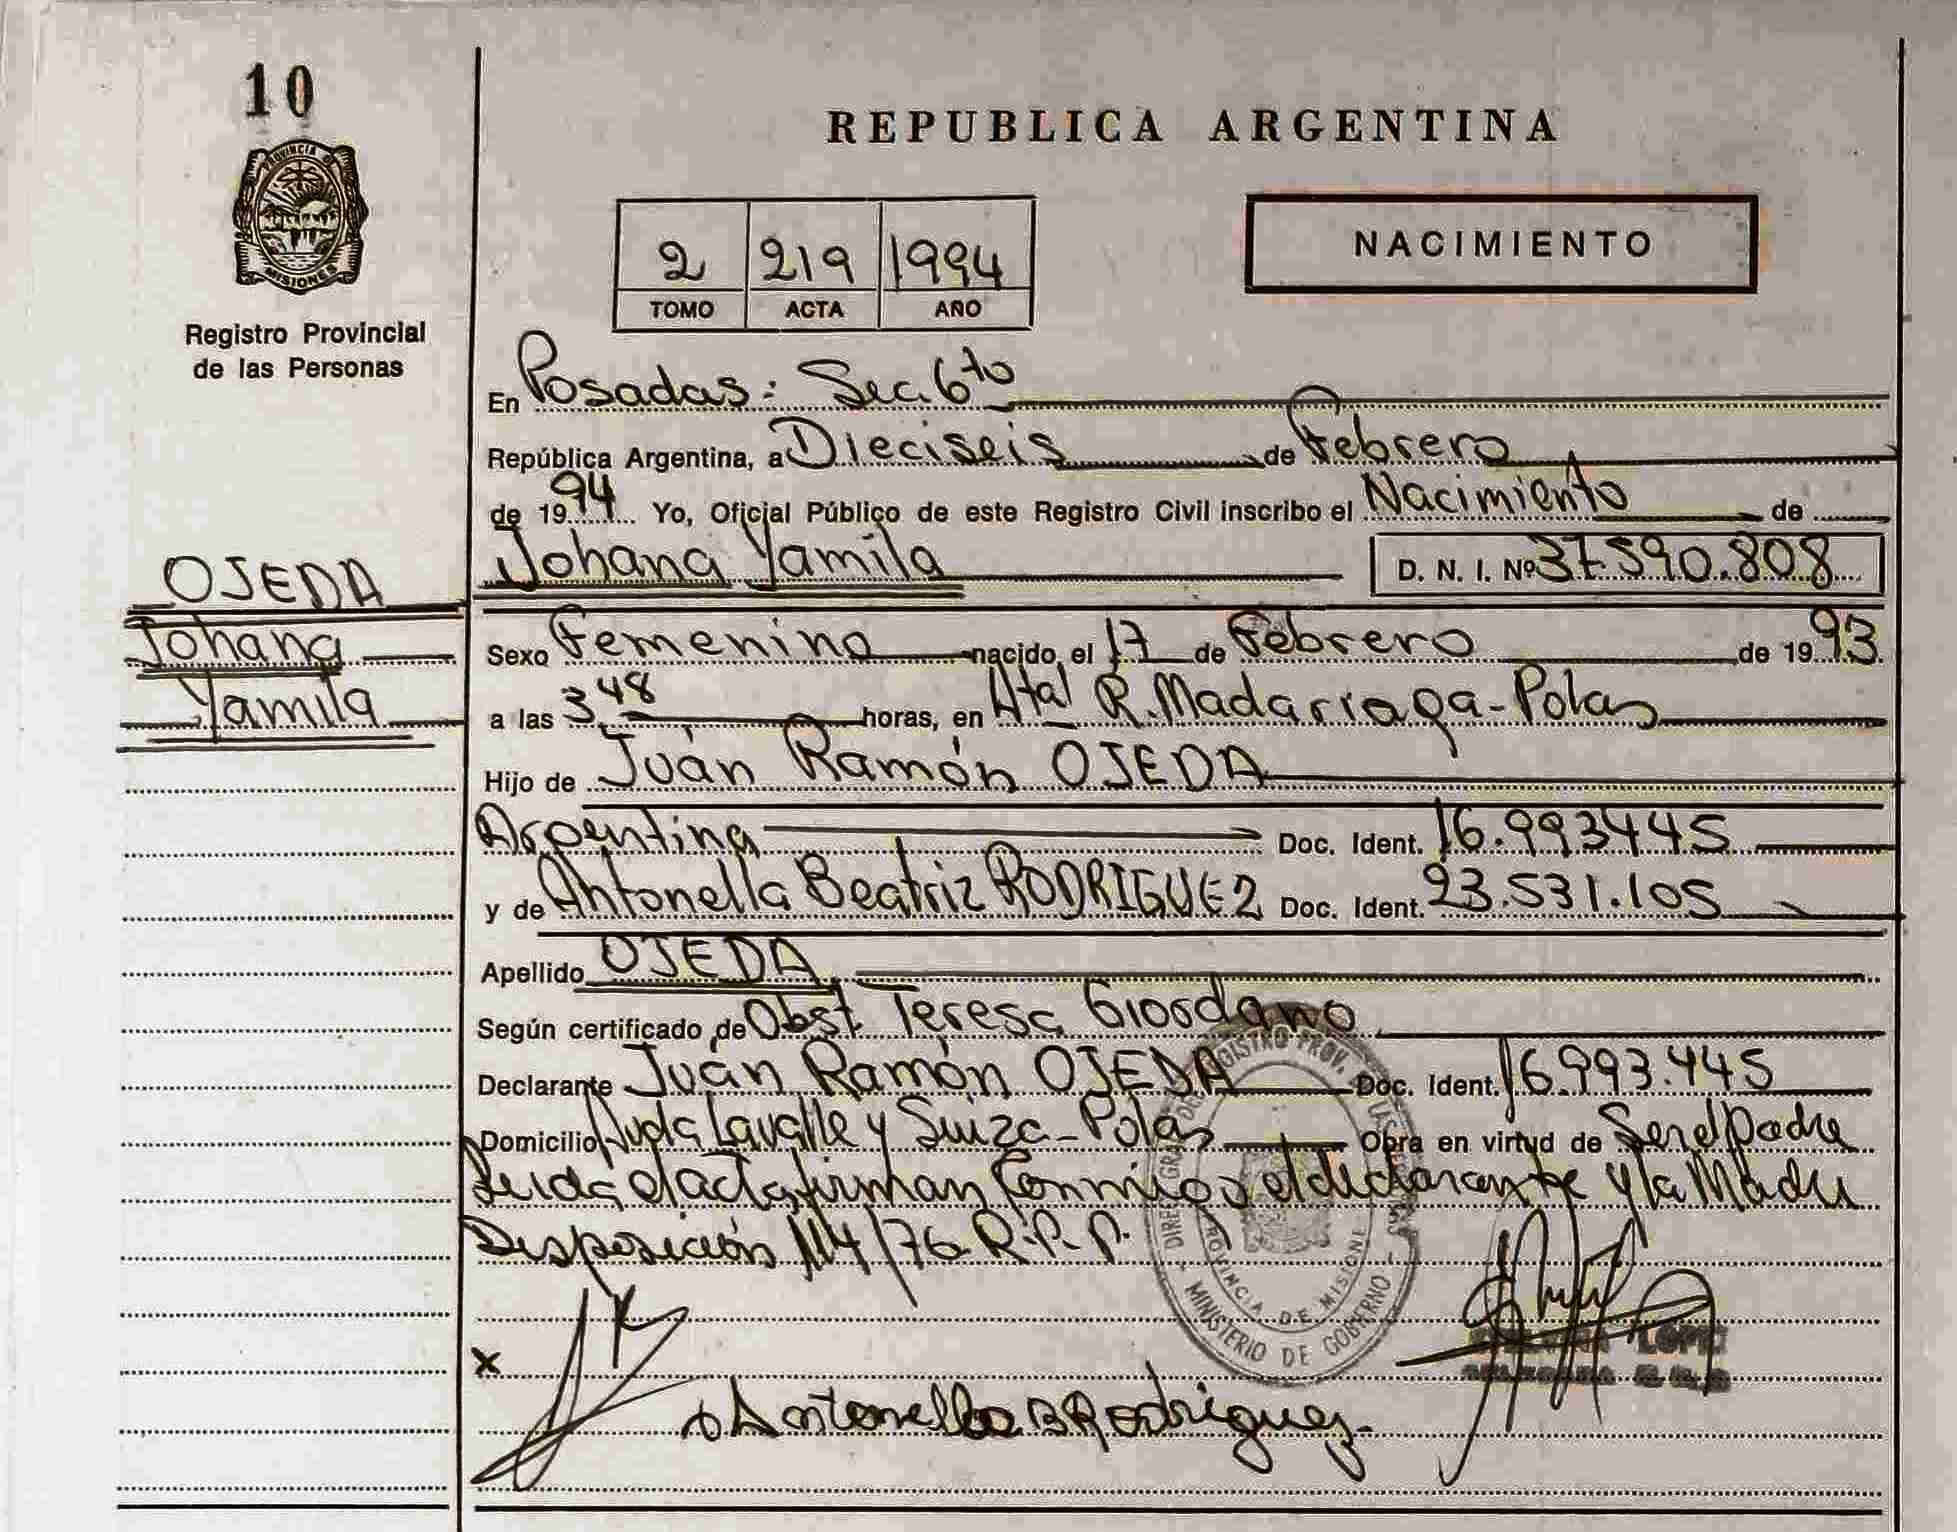 10
PROVINCIA DE
MISIONES
Registro Provincial
de las Personas
REPUBLICA ARGENTINA
2 219 1994
TOMO ACTA AÑO
NACIMIENTO
En Posadas: Sec. 6to
República Argentina, a Dieciseis de Febrero
de 1994 Yo, Oficial Público de este Registro Civil inscribo el Nacimiento de
Johana Yamila D. N. I. Nº 37.590.808
OJEDA
Johana
Yamila
Sexo Femenino nacido el 17 de Febrero de 1993
a las 3,48 horas, en Htal R. Madarriaga-Pdas
Hijo de Juán Ramón OJEDA
Argentina Doc. Ident. 16.993445
y de Antonella Beatriz RODRIGUEZ Doc. Ident. 23.531.105
Apellido OJEDA
Según certificado de Obst. Teresa Giordano
Declarante Juán Ramón OJEDA Doc. Ident. 16.993.445
Domicilio Avda Lavalle y Suiza-Pdas Obra en virtud de Ser el Padre
Leida el acta, firman Conmigo el declarante y la Madre
Disposición 114/76 R.P.P.
REGISTRO PROV.
PROVINCIA DE MISIONE
MINISTERIO DE GOBIERNO
LOPEZ
x
x Antonella B Rodriguez